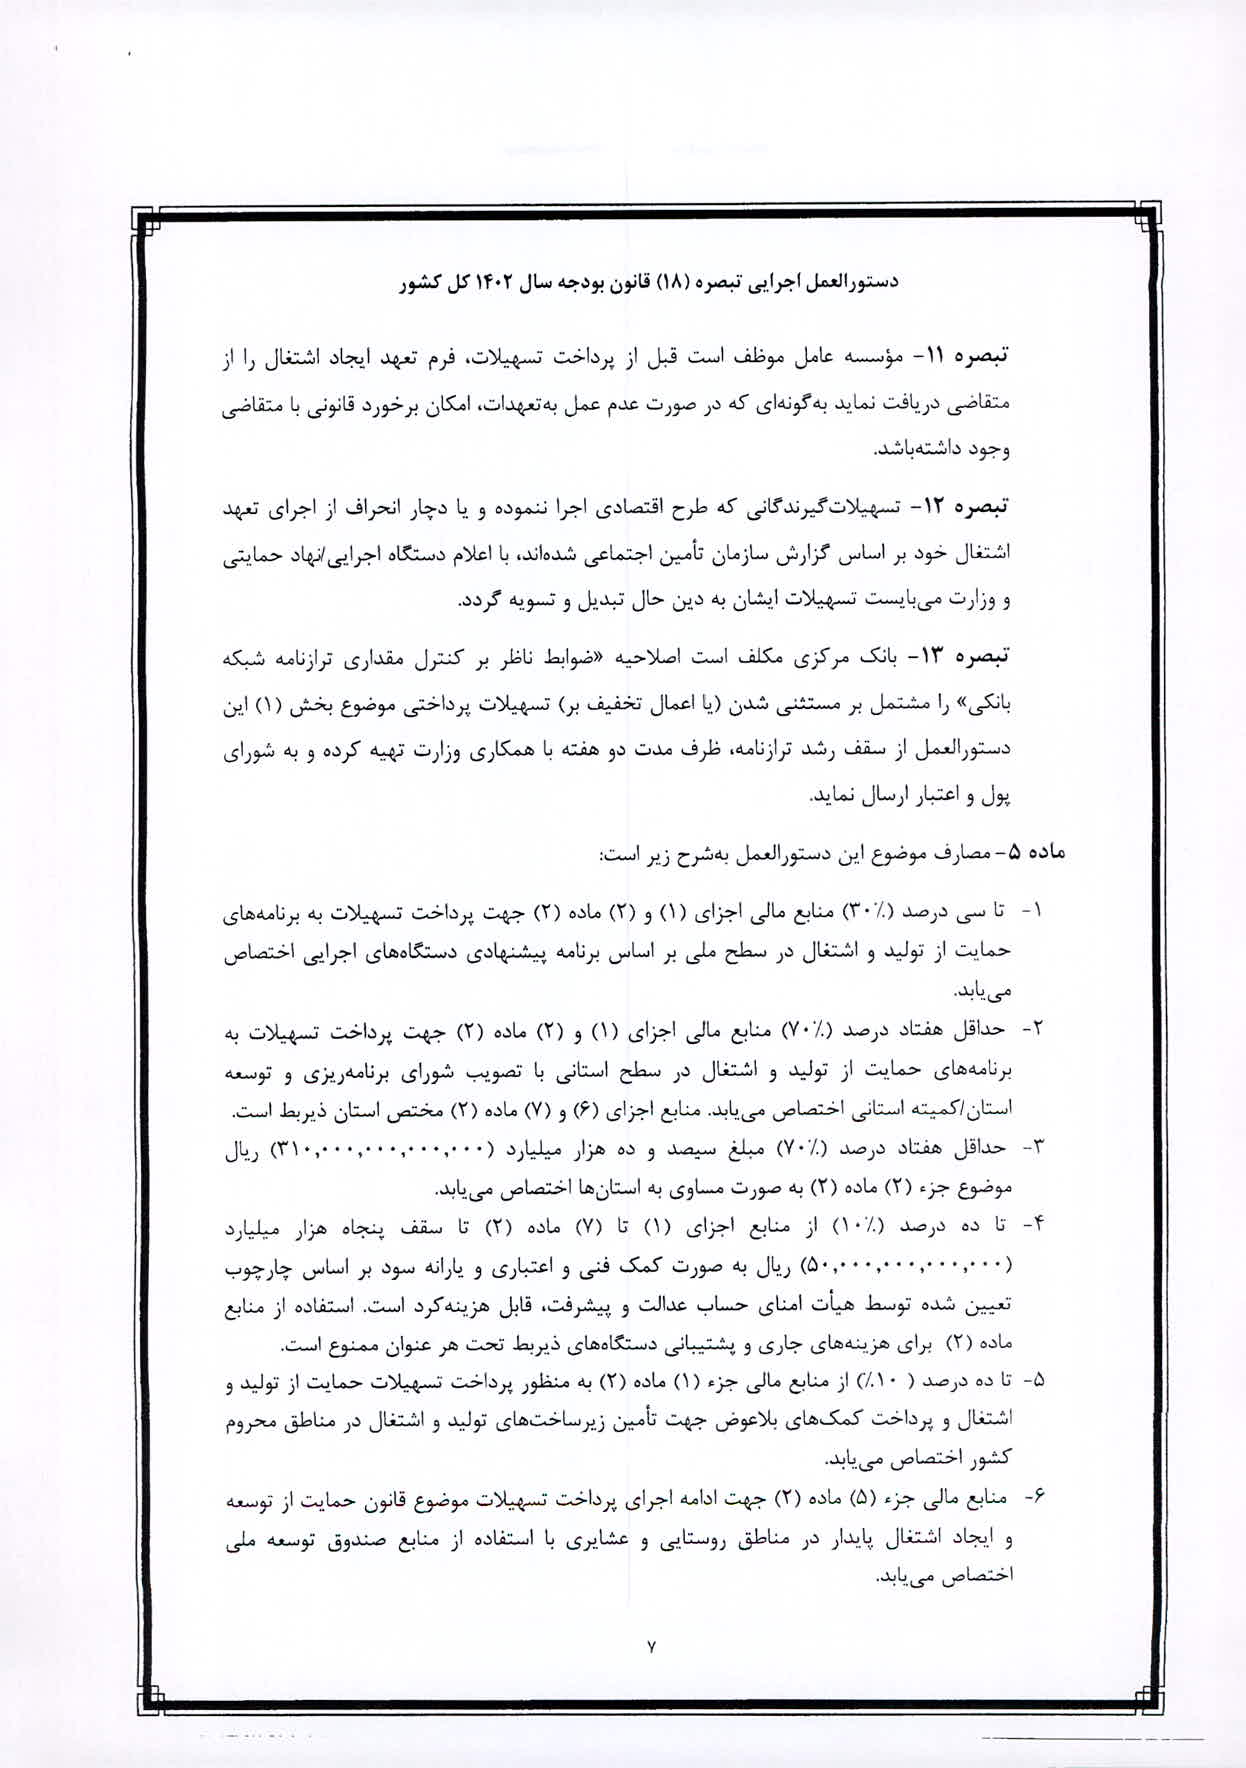 دستورالعمل اجرایی تبصره (۱۸) قانون بودجه سال ۱۴۰۲ کل کشور
تبصره ۱۱- مؤسسه عامل موظف است قبل از پرداخت تسهیلات، فرم تعهد ایجاد اشتغال را از
متقاضی دریافت نماید به‌گونه‌ای که در صورت عدم عمل به‌تعهدات، امکان برخورد قانونی با متقاضی
وجود داشته‌باشد.
تبصره ۱۲- تسهیلات‌گیرندگانی که طرح اقتصادی اجرا ننموده و یا دچار انحراف از اجرای تعهد
اشتغال خود بر اساس گزارش سازمان تأمین اجتماعی شده‌اند، با اعلام دستگاه اجرایی/نهاد حمایتی
و وزارت می‌بایست تسهیلات ایشان به دین حال تبدیل و تسویه گردد.
تبصره ۱۳- بانک مرکزی مکلف است اصلاحیه «ضوابط ناظر بر کنترل مقداری ترازنامه شبکه
بانکی» را مشتمل بر مستثنی شدن (یا اعمال تخفیف بر) تسهیلات پرداختی موضوع بخش (۱) این
دستورالعمل از سقف رشد ترازنامه، ظرف مدت دو هفته با همکاری وزارت تهیه کرده و به شورای
پول و اعتبار ارسال نماید.
ماده ۵- مصارف موضوع این دستورالعمل به‌شرح زیر است:
۱- تا سی درصد (۳۰٪) منابع مالی اجزای (۱) و (۲) ماده (۲) جهت پرداخت تسهیلات به برنامه‌های
حمایت از تولید و اشتغال در سطح ملی بر اساس برنامه پیشنهادی دستگاه‌های اجرایی اختصاص
می‌یابد.
۲- حداقل هفتاد درصد (۷۰٪) منابع مالی اجزای (۱) و (۲) ماده (۲) جهت پرداخت تسهیلات به
برنامه‌های حمایت از تولید و اشتغال در سطح استانی با تصویب شورای برنامه‌ریزی و توسعه
استان/کمیته استانی اختصاص می‌یابد. منابع اجزای (۶) و (۷) ماده (۲) مختص استان ذیربط است.
۳- حداقل هفتاد درصد (۷۰٪) مبلغ سیصد و ده هزار میلیارد (۳۱۰,۰۰۰,۰۰۰,۰۰۰,۰۰۰) ریال
موضوع جزء (۲) ماده (۲) به صورت مساوی به استان‌ها اختصاص می‌یابد.
۴- تا ده درصد (۱۰٪) از منابع اجزای (۱) تا (۷) ماده (۲) تا سقف پنجاه هزار میلیارد
(۵۰,۰۰۰,۰۰۰,۰۰۰,۰۰۰) ریال به صورت کمک فنی و اعتباری و یارانه سود بر اساس چارچوب
تعیین شده توسط هیأت امنای حساب عدالت و پیشرفت، قابل هزینه‌کرد است. استفاده از منابع
ماده (۲) برای هزینه‌های جاری و پشتیبانی دستگاه‌های ذیربط تحت هر عنوان ممنوع است.
۵- تا ده درصد ( ۱۰٪) از منابع مالی جزء (۱) ماده (۲) به منظور پرداخت تسهیلات حمایت از تولید و
اشتغال و پرداخت کمک‌های بلاعوض جهت تأمین زیرساخت‌های تولید و اشتغال در مناطق محروم
کشور اختصاص می‌یابد.
۶- منابع مالی جزء (۵) ماده (۲) جهت ادامه اجرای پرداخت تسهیلات موضوع قانون حمایت از توسعه
و ایجاد اشتغال پایدار در مناطق روستایی و عشایری با استفاده از منابع صندوق توسعه ملی
اختصاص می‌یابد.
۷